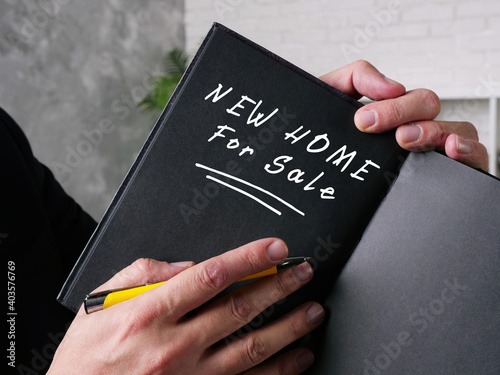 NEW HOME
For Sale
Adobe Stock | #403576769